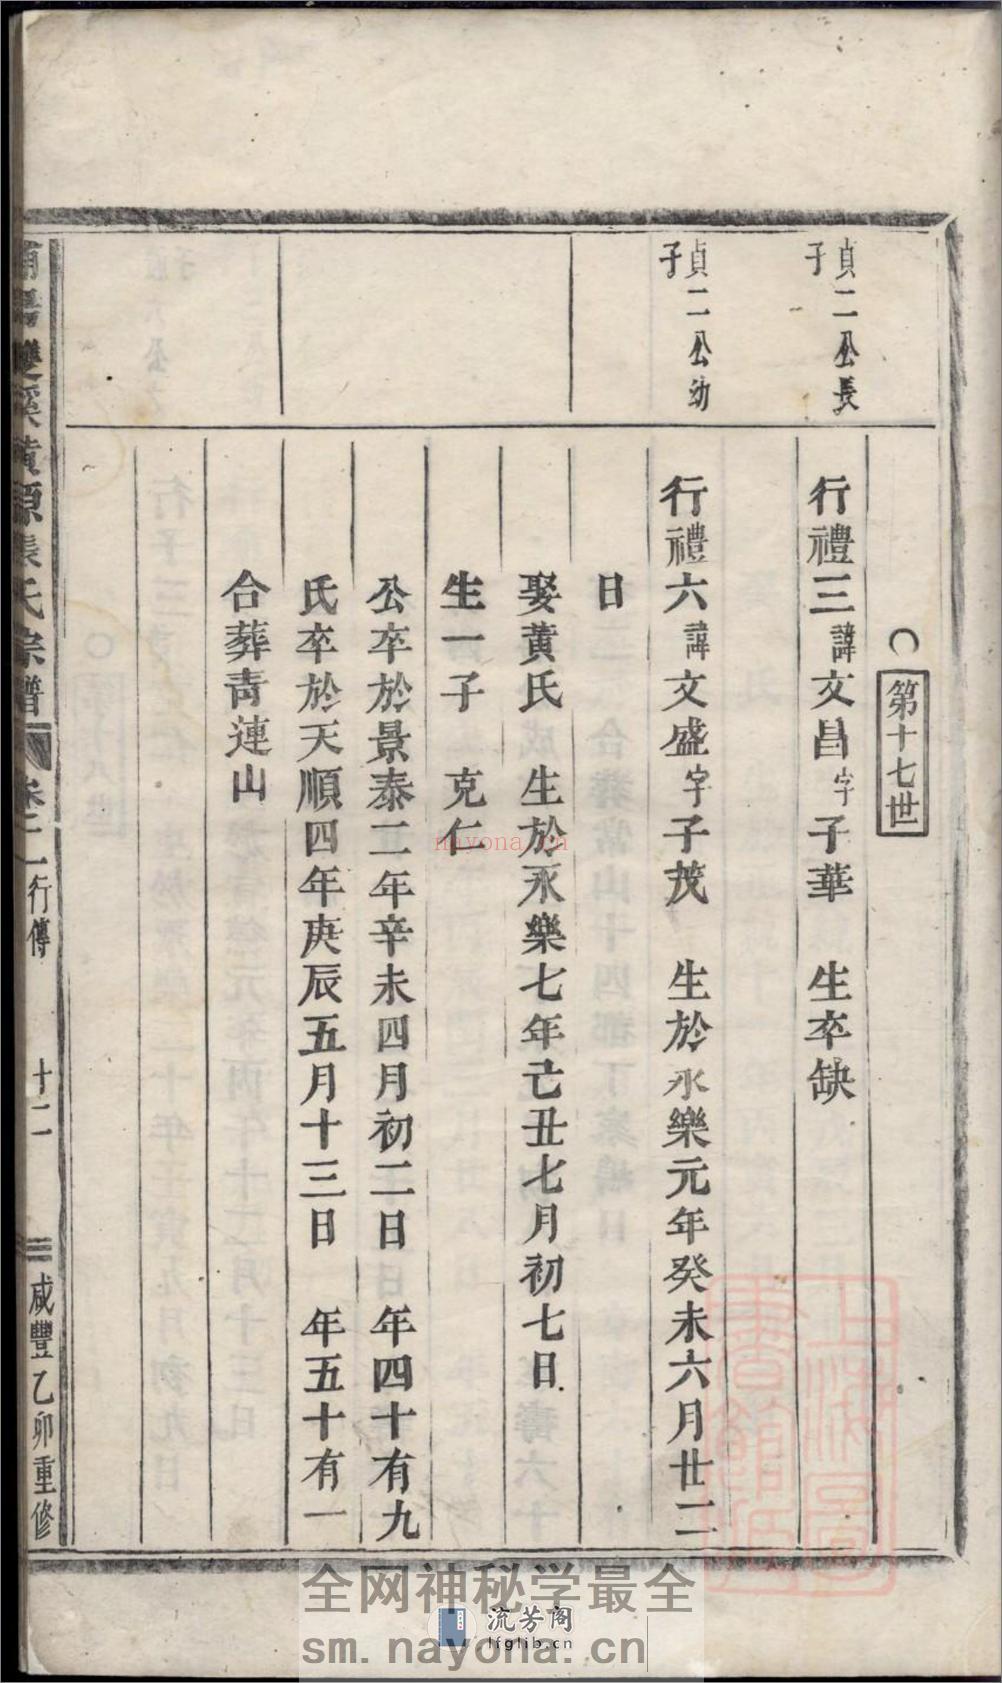 第十七世
貞二公長
子
行禮三諱文昌字子華 生卒缺
貞二公幼
子
行禮六諱文盛字子茂 生於永樂元年癸未六月廿二
日
娶黄氏 生於永樂七年己丑七月初七日
生一子 克仁
公卒於景泰二年辛未四月初二日 年四十有九
氏卒於天順四年庚辰五月十三日 年五十有一
合葬青蓮山
雙溪黄源張氏宗譜 卷二 行傳 十二 咸豐乙卯重修
上海圖書館藏
nayona.cn
全网神秘学最全
流芳阁
lfglib.cn
sm.nayona.cn